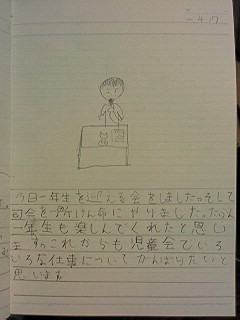 4 17
今日一年生を迎える会をしました。そして
司会を一所けん命にやりました。だから
一年生も楽しんでくれたと思い
ます。これからも児童会でいろ
いろな仕事についてがんばりたいと
思います